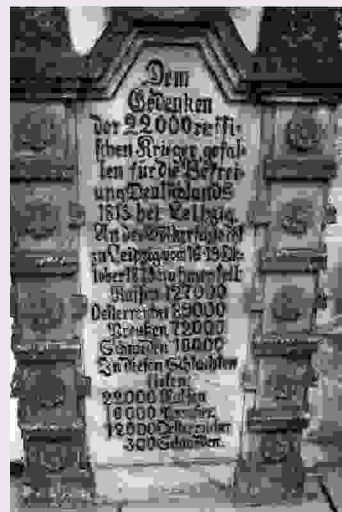 Dem
Gedenken
der 22000 russi-
schen Krieger, gefal-
len für die Befrei-
ung Deutschlands
1813 bei Leipzig.
An der Völkerschlacht
zu Leipzig vom 16-19. Ok-
tober 1813 nahmen teil:
Russen 127000
Oesterreicher 89000
Preussen 72000
Schweden 18000
In diesen Schlachten
fielen:
22000 Russen
16000 Preussen
12000 Oesterreicher
300 Schweden.